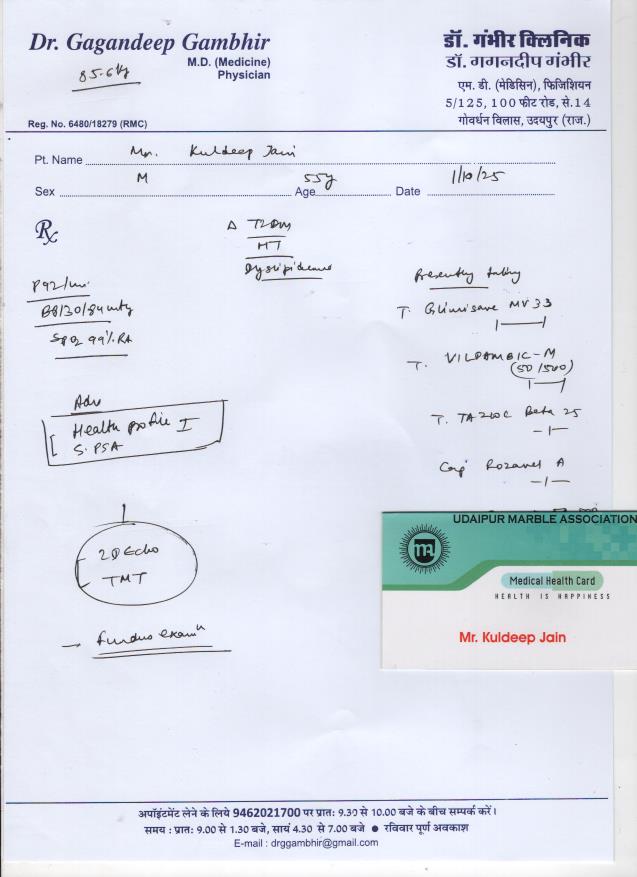 Dr. Gagandeep Gambhir
M.D. (Medicine)
Physician
85.6kg
डॉ. गंभीर क्लिनिक
डॉ. गगनदीप गंभीर
एम. डी. (मेडिसिन), फिजिशियन
5/125, 100 फीट रोड, से.14
गोवर्धन विलास, उदयपुर (राज.)
Reg. No. 6480/18279 (RMC)
Pt. Name Mr. Kuldeep Jain
Sex M Age 55y Date 1/10/25
Rx
Δ T2DM
HT
Dyslipidemia
P92/
SpO2 99% RA
Adv
Health profile I
S. PSA
2D Echo
TMT
→ fundus examn
Presently taking
T. Glimisave MV 33
T. VILDAMBIC-M
(50/500)
T. TAZLOC Beta 25
Cap Rozavel A
UDAIPUR MARBLE ASSOCIATION
Medical Health Card
HEALTH IS HAPPINESS
Mr. Kuldeep Jain
अपॉइंटमेंट लेने के लिये 9462021700 पर प्रातः 9.30 से 10.00 बजे के बीच सम्पर्क करें।
समय : प्रातः 9.00 से 1.30 बजे, सायं 4.30 से 7.00 बजे ● रविवार पूर्ण अवकाश
E-mail : drggambhir@gmail.com